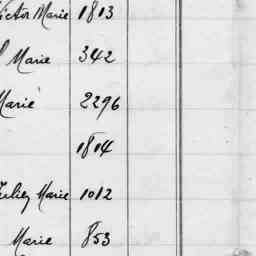 Victor Marie 1813
Marie 342
Marie 2296
1814
Marie 1012
Marie 853